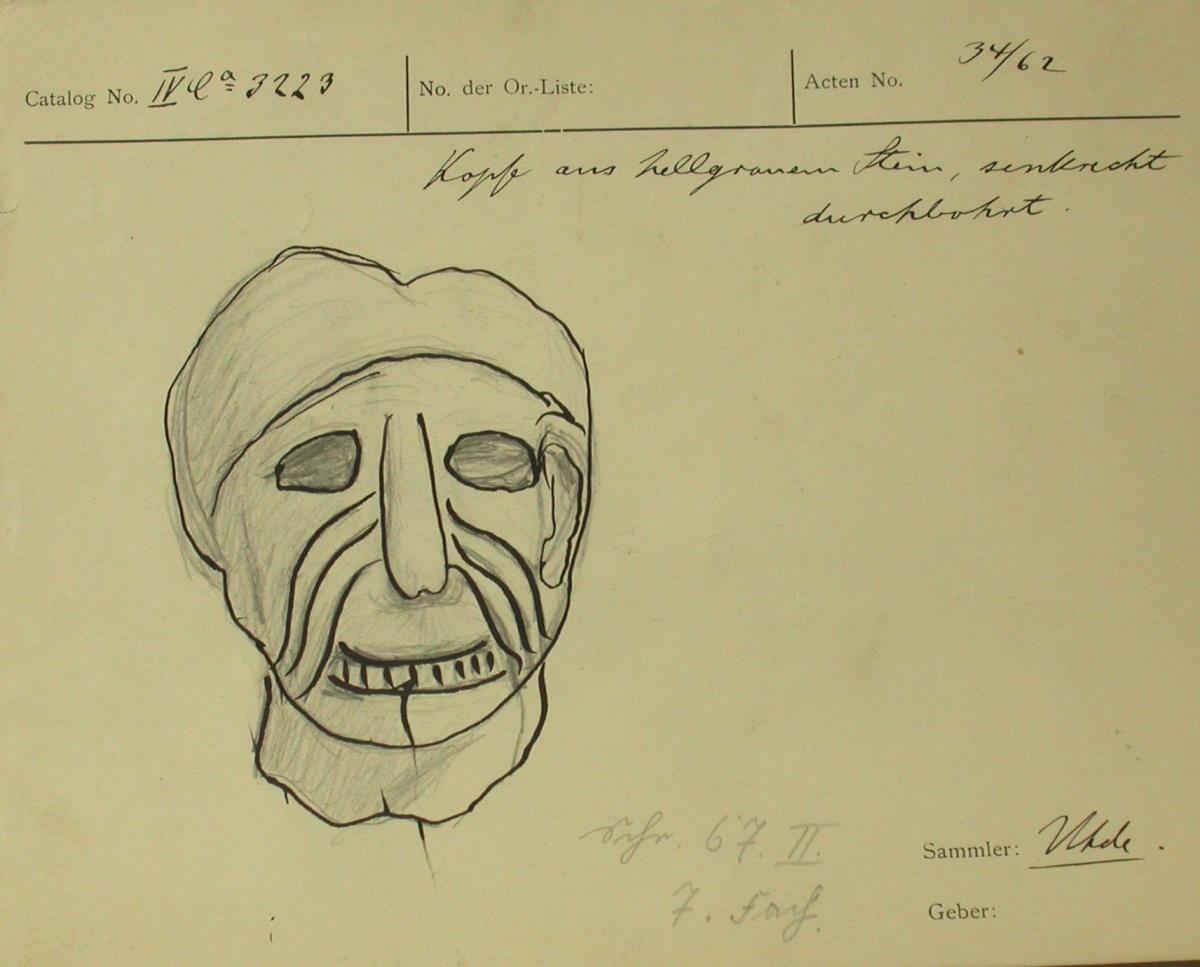 Catalog No. IV Ca 3223 No. der Or.-Liste: Acten No. 34/62
Kopf aus hellgrauem Stein, senkrecht
durchbohrt.
Schr. 67. II.
7. Fach.
Sammler: Uhde.
Geber: